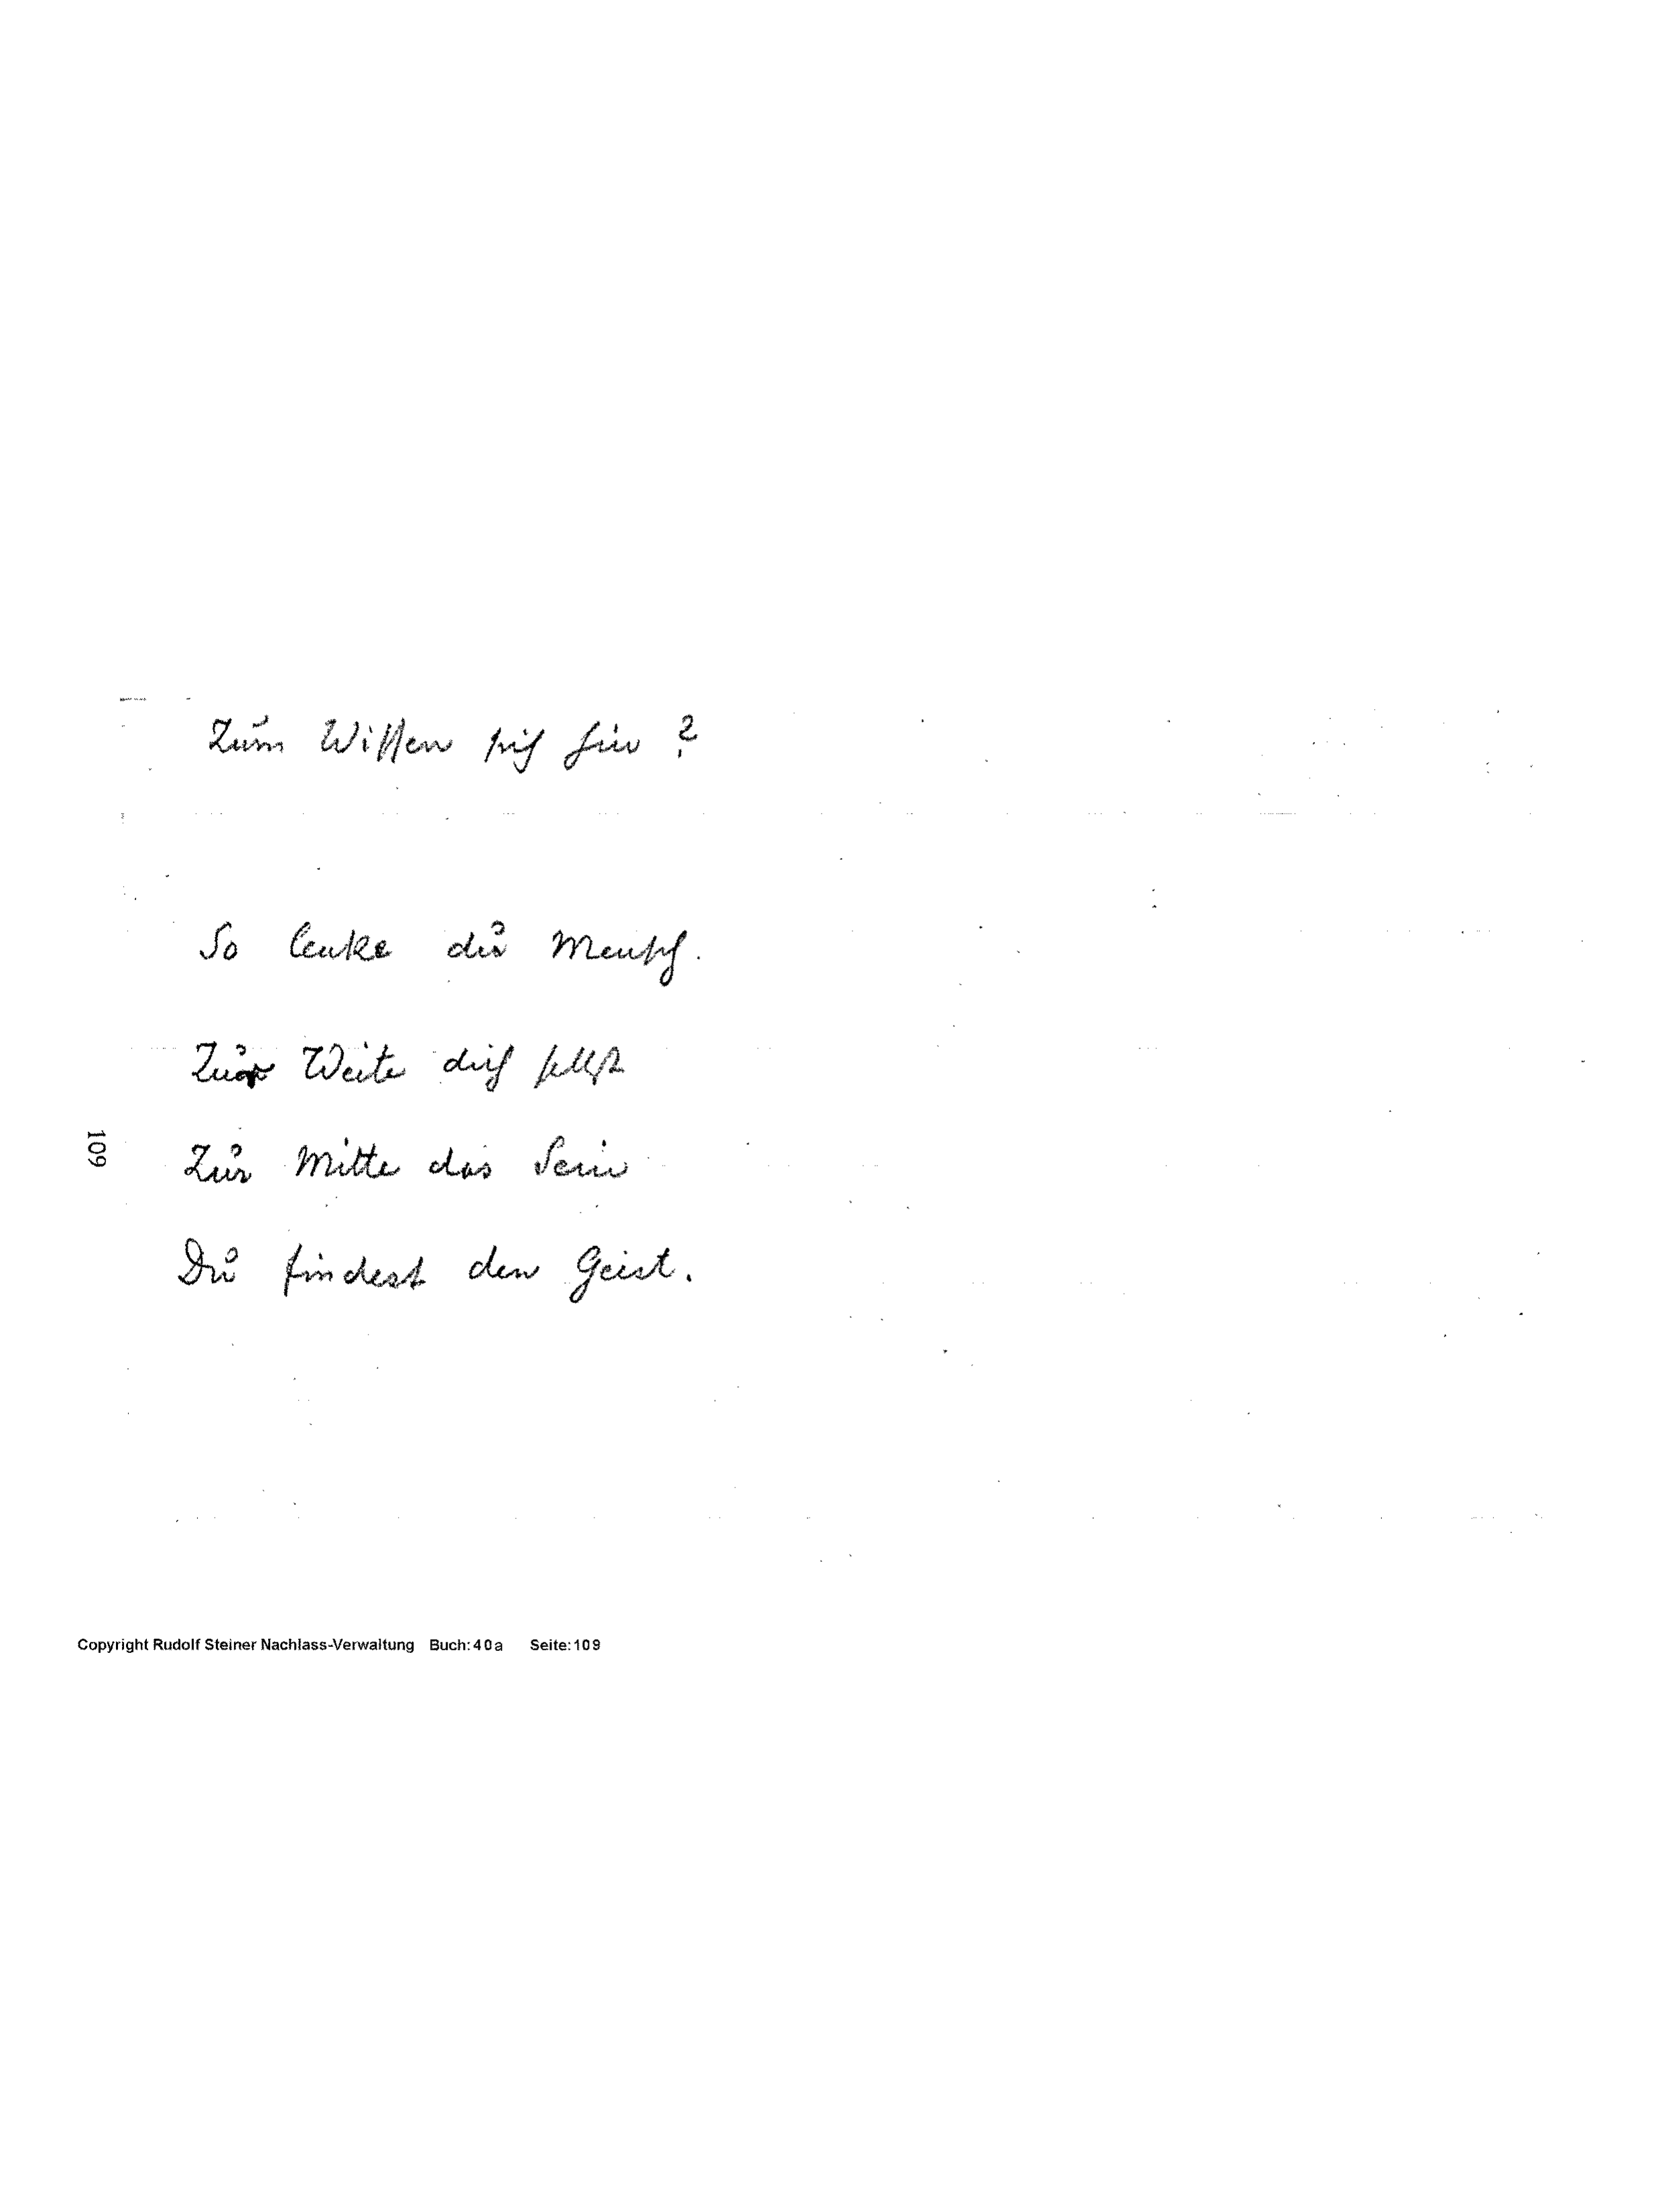 Zum Wissen sich hin?
So lenke du Mensch.
Zur Weite dich selbst
Zur Mitte das Sein
Du findest den Geist.
109
Copyright Rudolf Steiner Nachlass-Verwaltung Buch:40a Seite:109